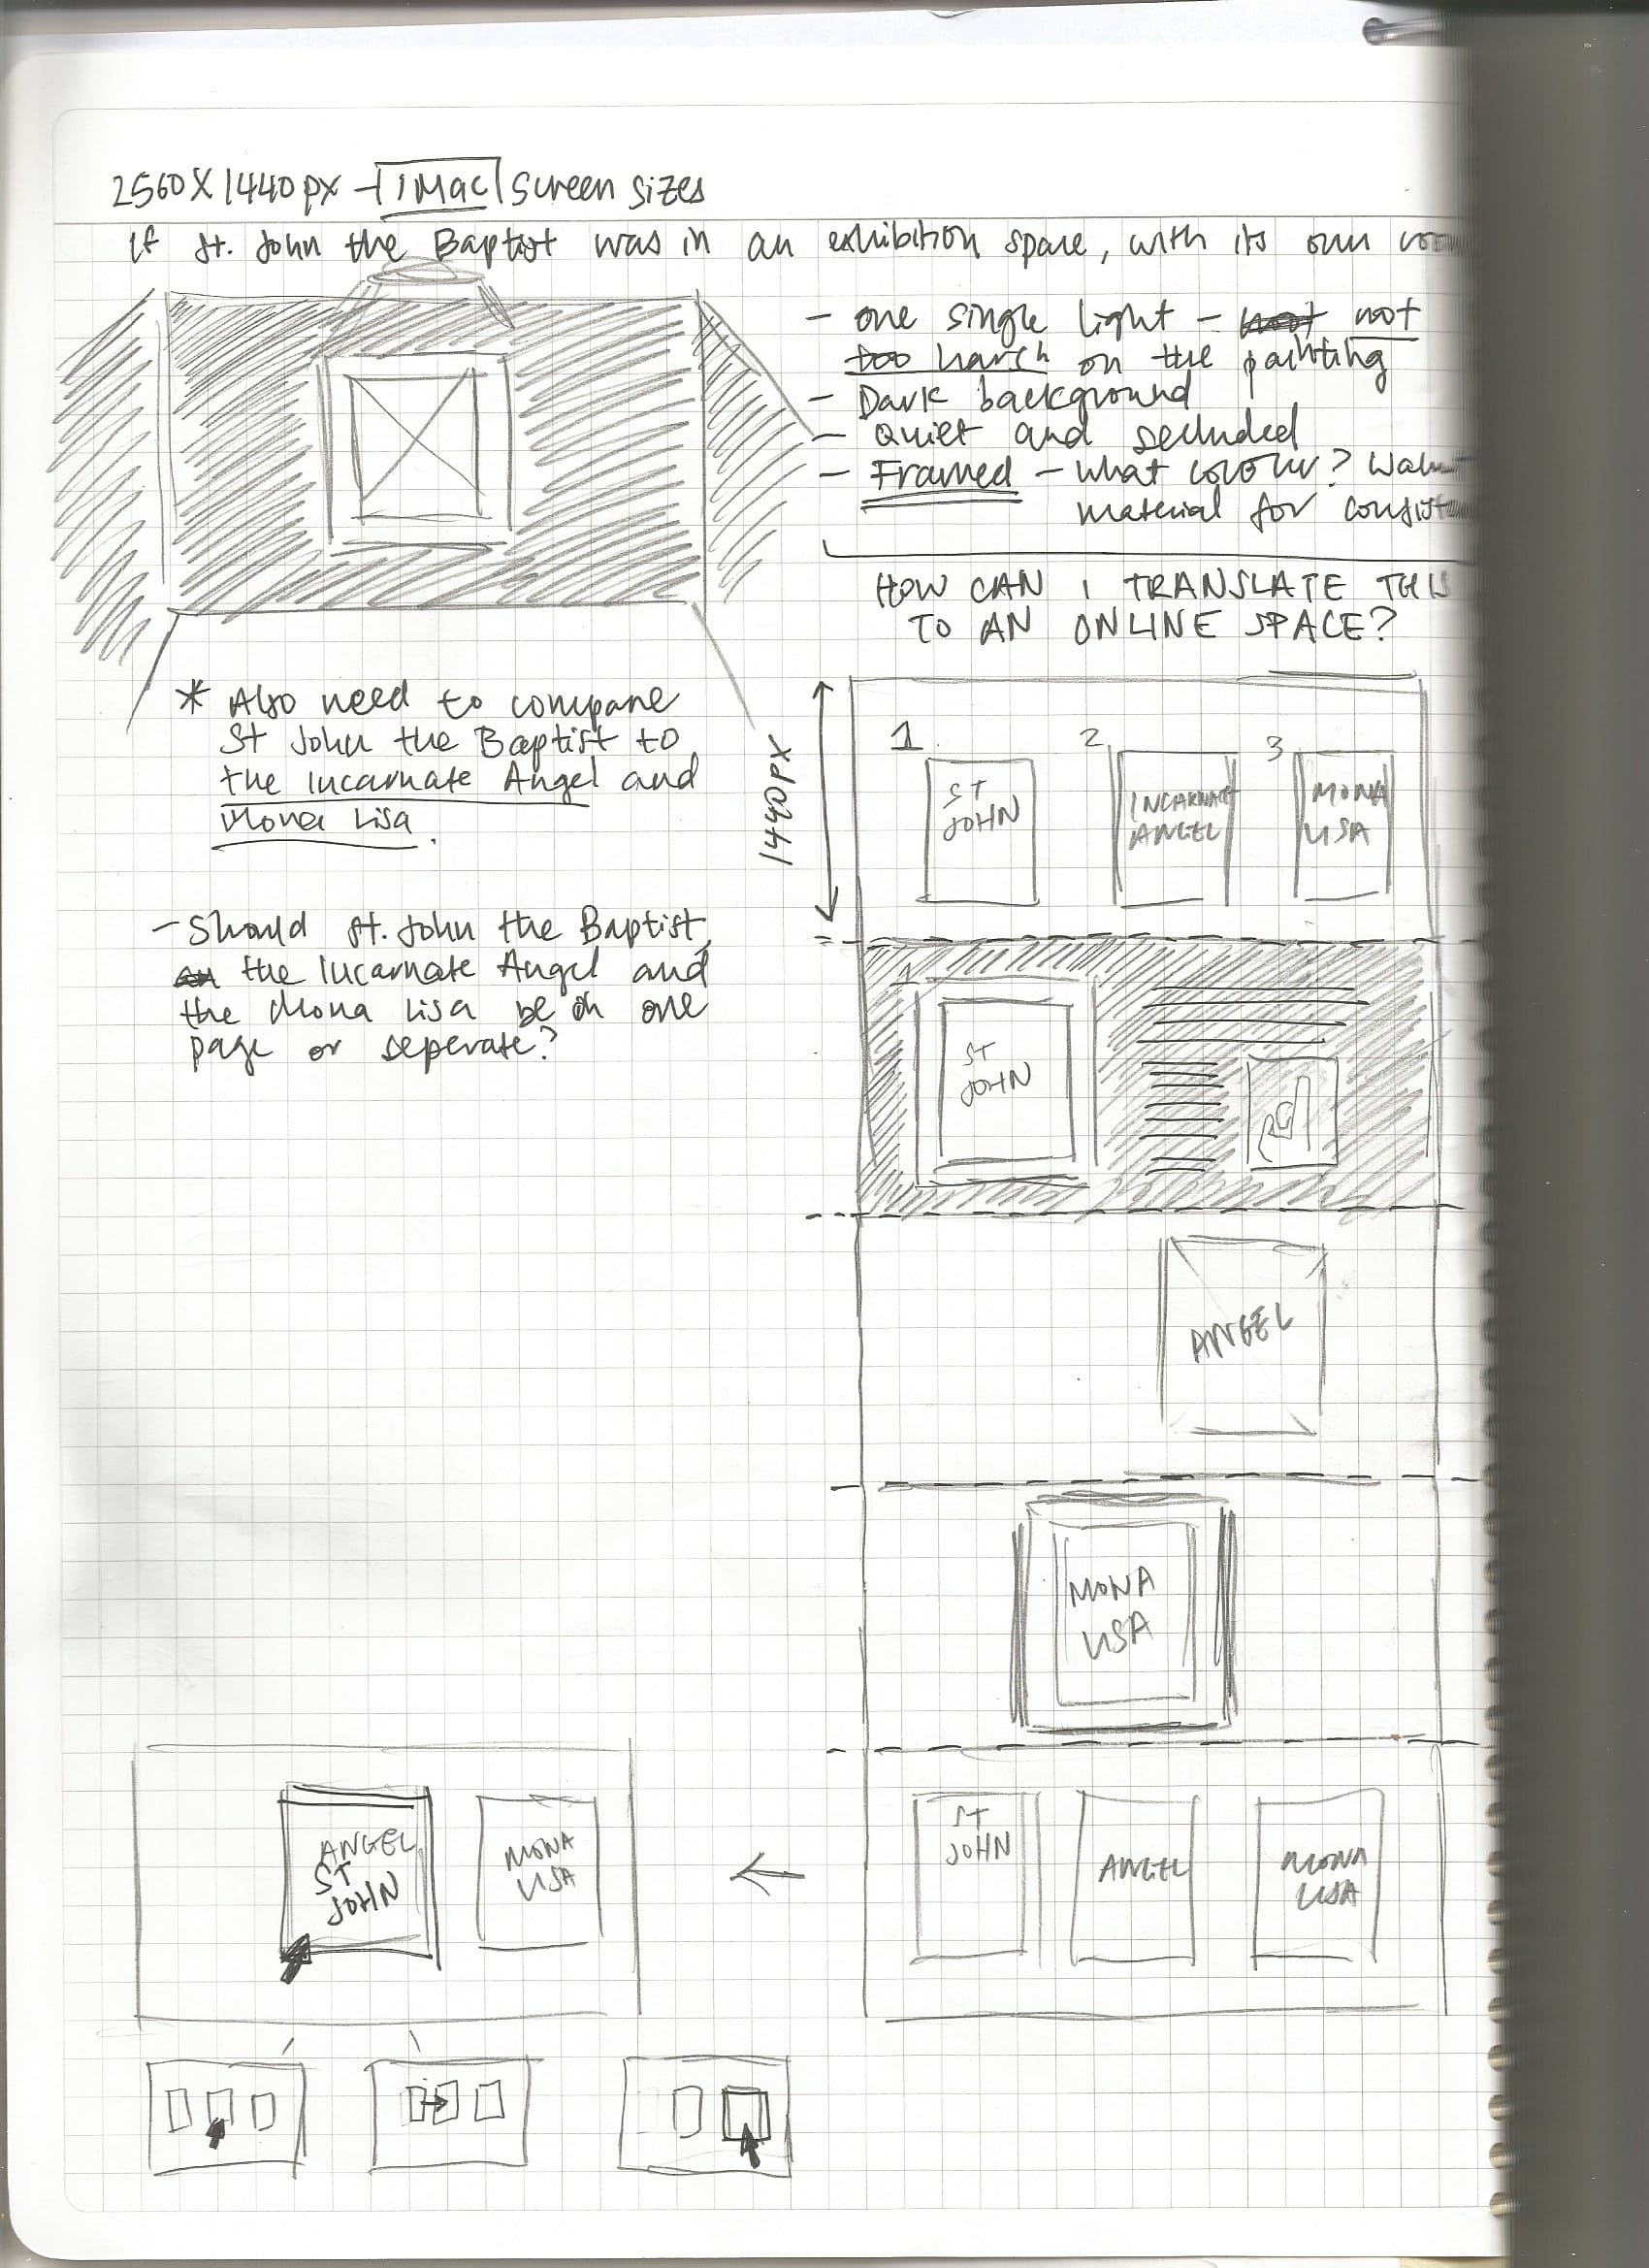 2560 X 1440px - iMac screen sizes
If St. John the Baptist was in an exhibition space, with its own
- one single light - not
too harsh on the painting
- Dark background
- Quiet and secluded
- Framed - what colour?
material for
HOW CAN I TRANSLATE THIS
TO AN ONLINE SPACE?
* Also need to compare
St John the Baptist to
the Incarnate Angel and
Mona Lisa.
- Should St. John the Baptist,
the Incarnate Angel and
the Mona Lisa be on one
page or seperate?
1440px
1 2 3
ST
JOHN
INCARNATE
ANGEL
MONA
LISA
1
ST
JOHN
ANGEL
MONA
LISA
ST
JOHN
ANGEL
MONA
LISA
ANGEL
ST
JOHN
MONA
LISA